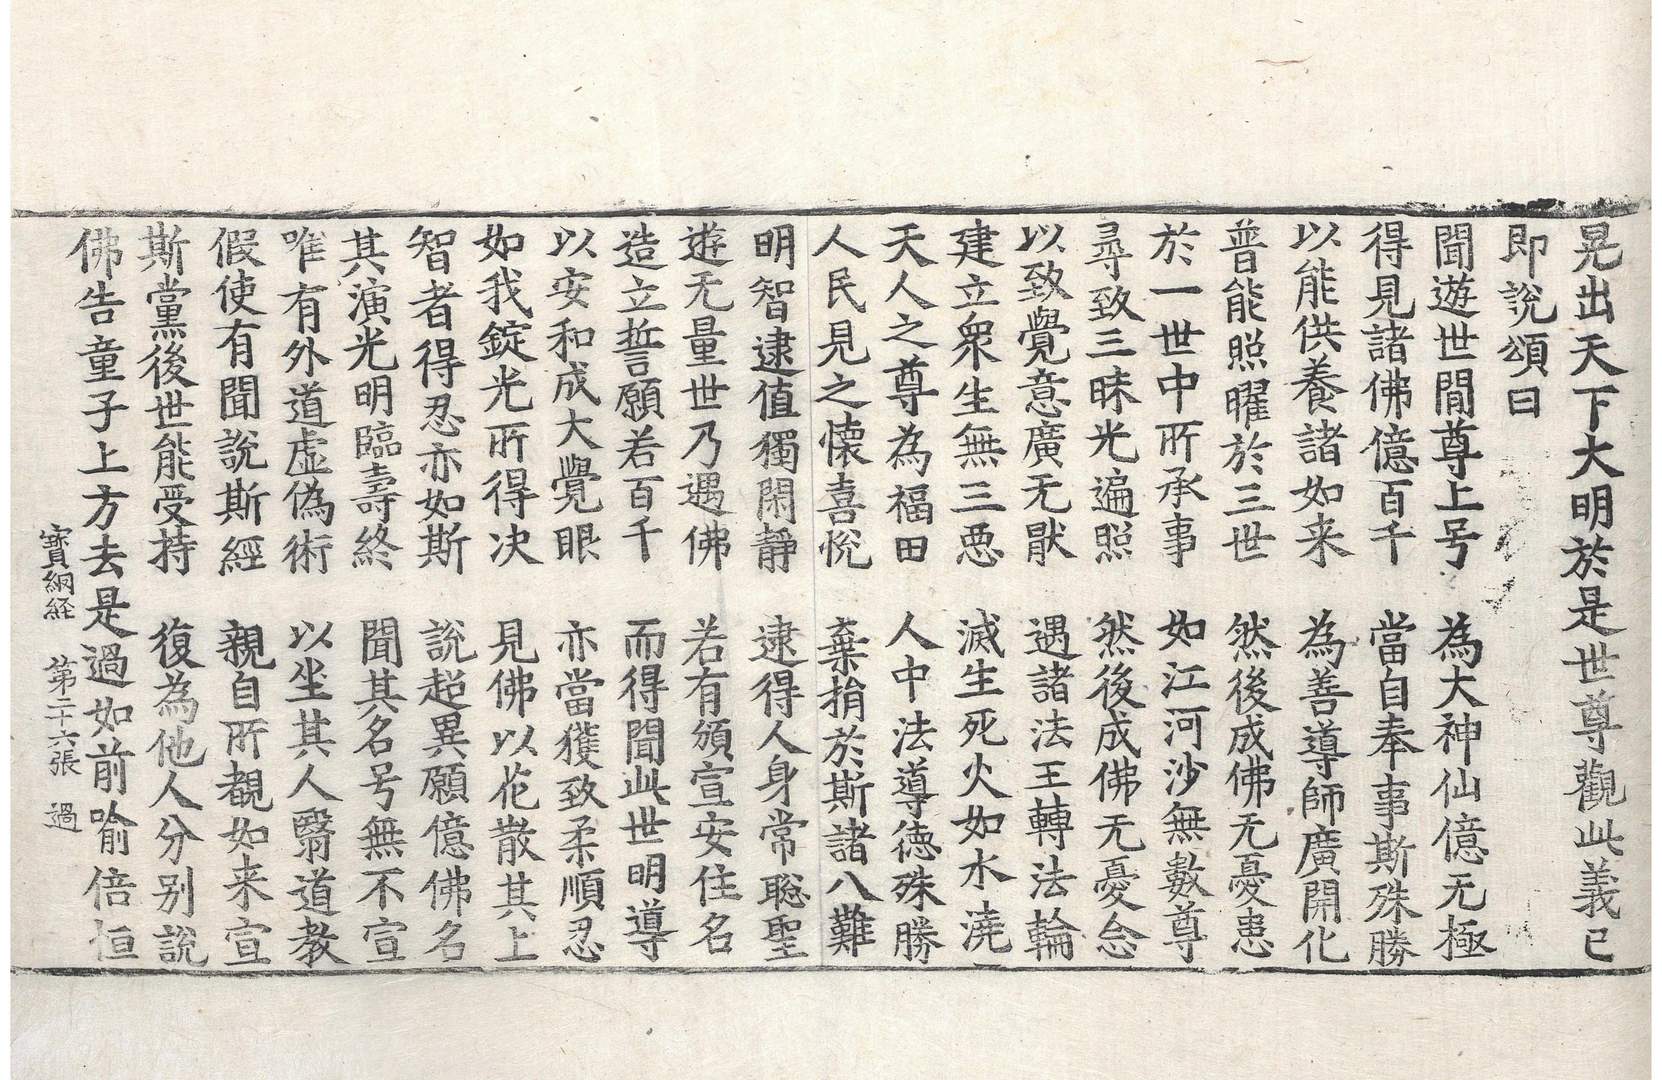 晃出天下大明於是世尊觀此義已
即說頌曰
聞遊世間尊上号　為大神仙億无極
得見諸佛億百千　當自奉事斯殊勝
以能供養諸如来　為善導師廣開化
普能照曜於三世　然後成佛无憂患
於一世中所承事　如江河沙無數尊
尋致三昧光遍照　然後成佛无憂念
以致覺意廣无猒　遇諸法王轉法輪
建立衆生無三惡　滅生死火如水澆
天人之尊為福田　人中法導德殊勝
人民見之懷喜悅　棄捐於斯諸八難
明智逮值獨閑靜　逮得人身常聡聖
遊无量世乃遇佛　若有頒宣安住名
造立誓言願若百千　而得聞此世明導
以安和成大覺眼　亦當獲致柔順忍
如我錠光所得决　見佛以花散其上
智者得忍亦如斯　說超異願億佛名
其演光明臨壽終　聞其名号無不宣
唯有外道虛偽術　以坐其人翳道教
假使有聞說斯經　親自所覩如来宣
斯黨後世能受持　復為他人分别說
佛告童子上方去是過如前喻倍恒
寶網経　第二十六張　過